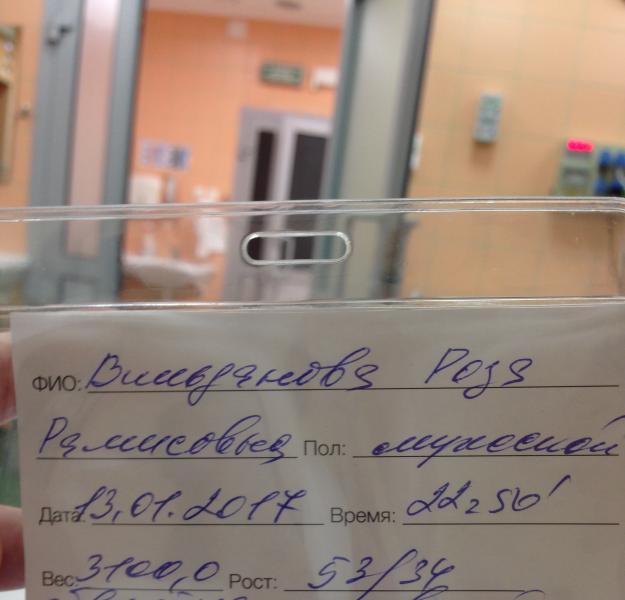 ФИО: Вильданова Роза
Рамисовна Пол: мужской
Дата: 13.01.2017 Время: 22:50'
Вес: 3100,0 Рост: 53/34